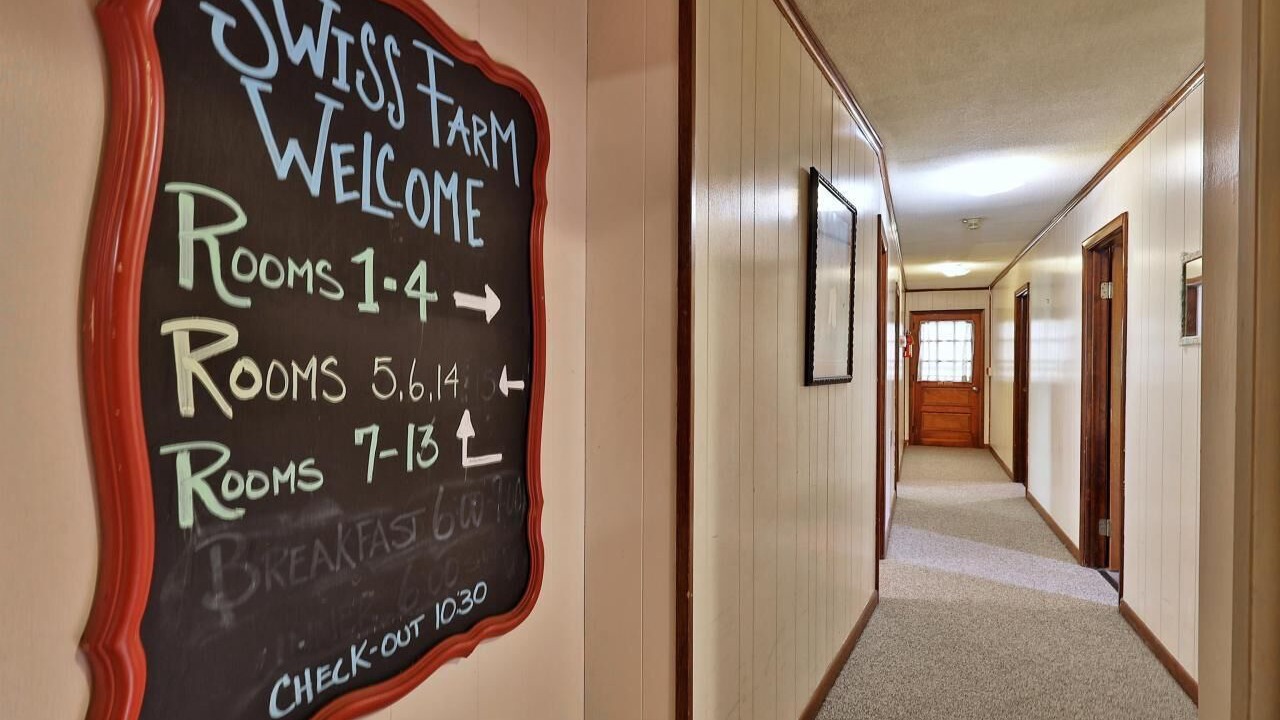 SWISS FARM
WELCOME
ROOMS 1-4 →
ROOMS 5.6.14 ←
ROOMS 7-13
BREAKFAST 6
CHECK-OUT 10:30